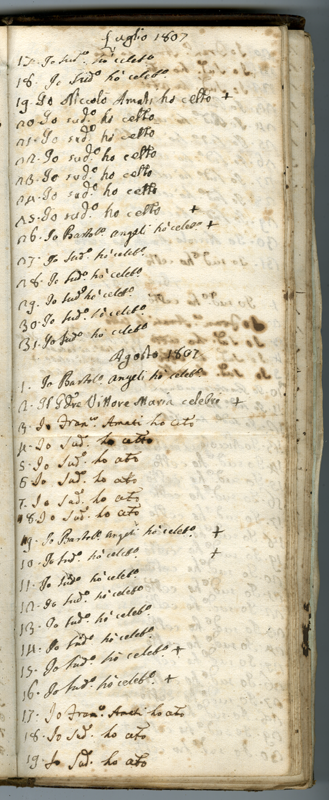 Luglio 1807
17. Io sud.º hò celeb.º
18. Io sud.º hò celeb.º
19. Io Niccolo Amati hò celto +
20. Io sud.º ho celto
21. Io sud.º ho celto
22. Io sud.º ho celto
23. Io sud.º ho celto
24. Io sud.º ho celto
25. Io sud.º ho celto +
26. Io Bartol.º angeli hò celeb.º +
27. Io sud.º hò celeb.º
28. Io sud.º hò celeb.º
29. Io sud.º hò celeb.º
30. Io sud.º hò celeb.º
31. Io sud.º hò celeb.º
Agosto 1807
1. Io Bartol.º angeli hò celeb.º
2. Il Pdre Vittore Maria celebrò +
3. Io Fran.º Amati ho cto
4. Io Sud.º ho cto
5. Io Sud.º ho cto
6 Io Sud.º ho cto
7. Io Sud.º ho cto
8. Io Sud.º ho cto
9. Io Bartol.º angeli hò celeb.º +
10. Io sud.º hò celeb.º +
11. Io sud.º hò celeb.º
12. Io sud.º hò celeb.º
13. Io sud.º hò celeb.º
14. Io sud.º hò celeb.º
15. Io sud.º hò celeb.º +
16. Io sud.º hò celeb.º +
17. Io Fran.º Amati ho cto
18. Io Sud.º ho cto
19. Io Sud.º ho cto